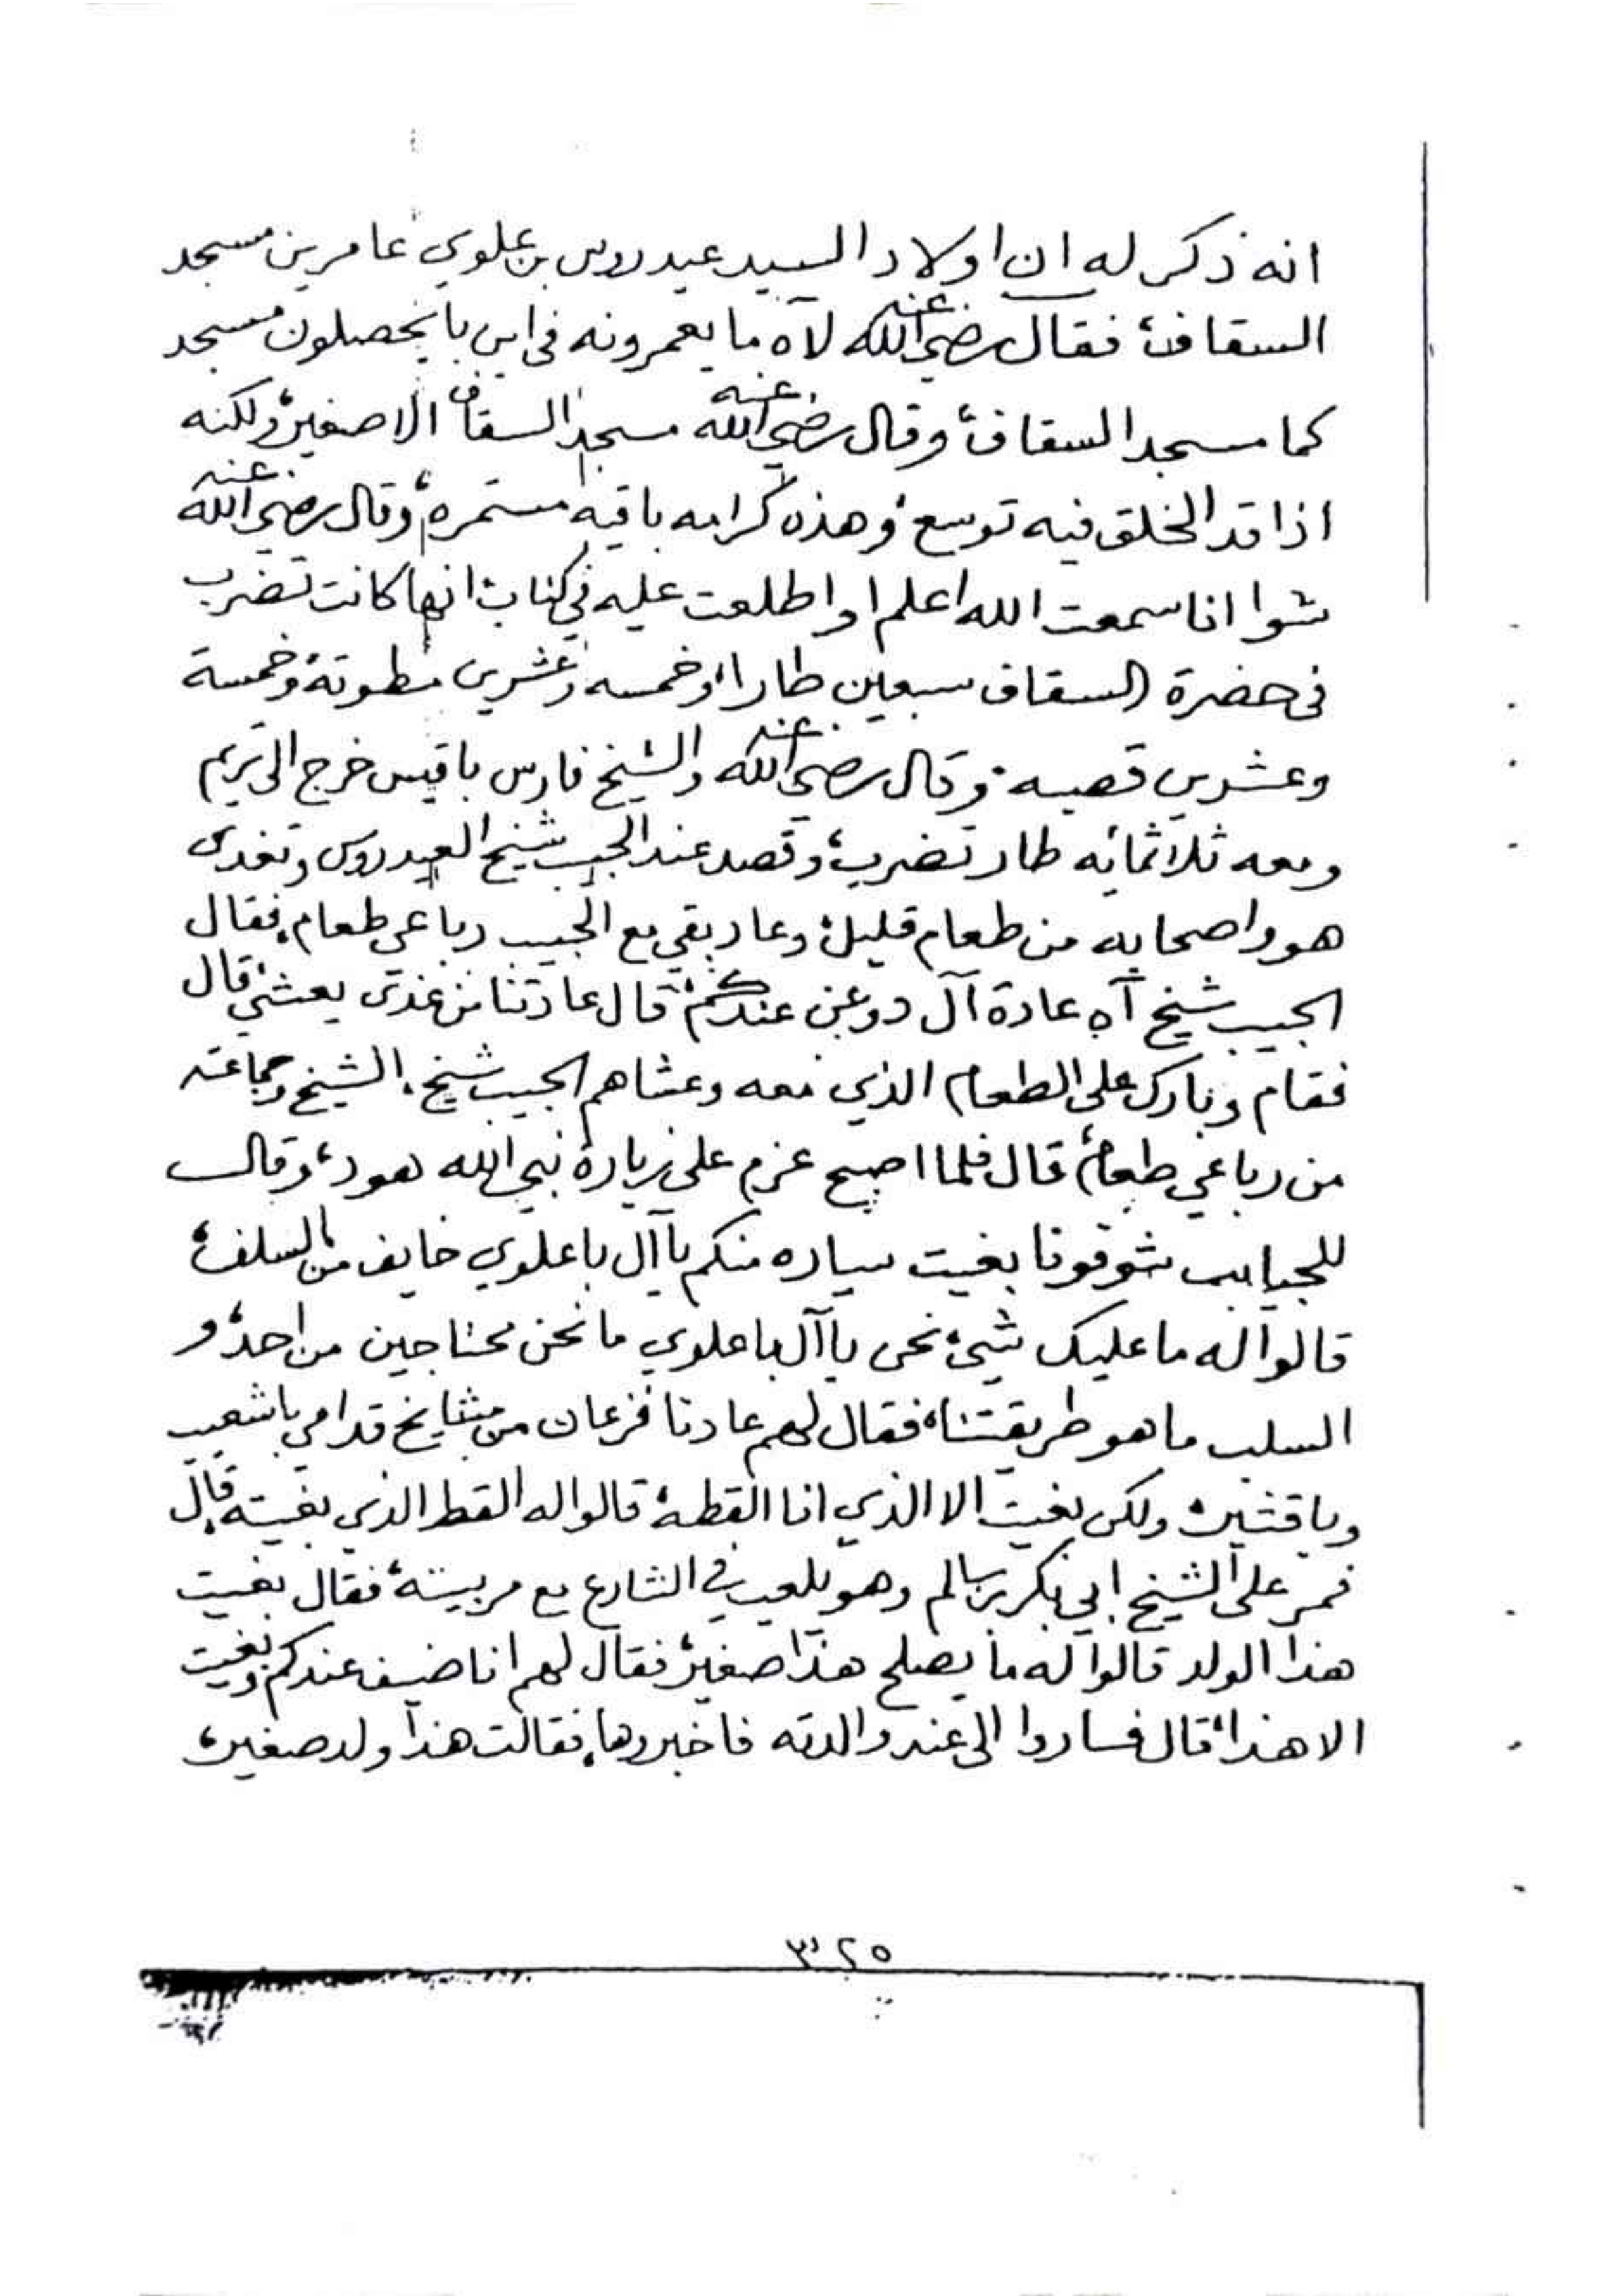 انه ذكر له ان اولاد السيد عيدروس بن علوي عامرين مسجد
السقاف، فقال رضي الله عنه لاه ما يعمرونه في اين با يحصلون مسجد
كما مسجد السقاف، وقال رضي الله عنه مسجد السقاف الا صغير، ولكنه
اذا قد الخلق فيه توسع، وهذه كرامه باقيه مستمره، وقال رضي الله عنه
شوا انا سمعت الله اعلم او اطلعت عليه في كتاب، انها كانت تضرب
في حضرة السقاف سبعين طارا، وخمسه وعشرين وخمسة
وعشرين قصبه، وقال رضي الله عنه والشيخ فارس باقيس خرج الى تريم
ومعه ثلاثمائه طار تضرب، وقصد عند الحبيب شيخ العيدروس وتغدى
هو واصحابه من طعام قليل، وعاد بقي مع الحبيب رباعي طعام، فقال
الحبيب شيخ آه عادة آل دوعن عندكم، قال عادتنا من غدى يعشي، قال
فقام وبارك على الطعام الذي معه وعشاهم الحبيب شيخ، الشيخ وجماعته
من رباعي طعام، قال فلما اصبح عزم على زيارة نبي الله هود، وقال
للحبايب شوفونا بغيت سياره منكم يا آل باعلوي خايف من السلف،
قالوا له ما عليك شيء نحن يا آل باعلوي ما نحن محتاجين من احد، و
السلب ما هو طريقتنا، فقال لهم عادنا فزعان من مشايخ قدامي باشعيب
ولكن بغيت الا الذي انا القطه، قالوا له القط الذي بغيته، قال
فمر على الشيخ ابي بكر بن سالم وهو يلعب في الشارع مع مربيته، فقال بغيت
هذا الولد قالوا له ما يصلح هذا صغير، فقال لهم انا ضيف عندكم وبغيت
الا هذا، قال فساروا الى عند والدته فاخبروها، فقالت هذا ولد صغير،
٣٢٥